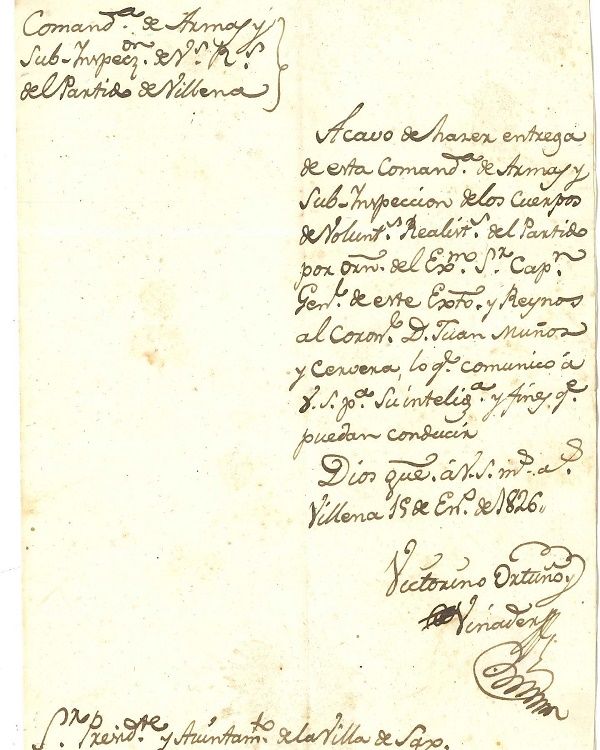 Comand.ª de Armas y
Sub-Inspecz.on de V.s R.s
del Partido de Villena
Acavo de hazer entrega
de esta Comand.ª de Armas y
Sub-Inspeccion de los Cuerpos
de Volunt.s Realist.s del Partido
por orn. del Ex.mo S.r Cap.n
Gen.l de este Exto. y Reynos
al Coron.l D. Juan Muñoz
y Cervera, lo q.e comunico á
V.S. p.ª Su inteligª. y fines q.e
puedan conducir
Dios gue. á V.S. m.s a.s
Villena 15 de En.o de 1826
Victorino Ortuño y
Viñader
S.r Presid.te y Aiuntam.to de la Villa de Sax.